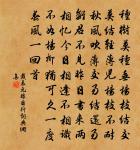 種樹莫種垂楊枝結交
莫結輕薄兒楊枝不耐
秋風吹薄交易結還易
離君不見昨日書來兩
相憶今日相逢不相識
不如楊枝猶可久一度
春風一回首